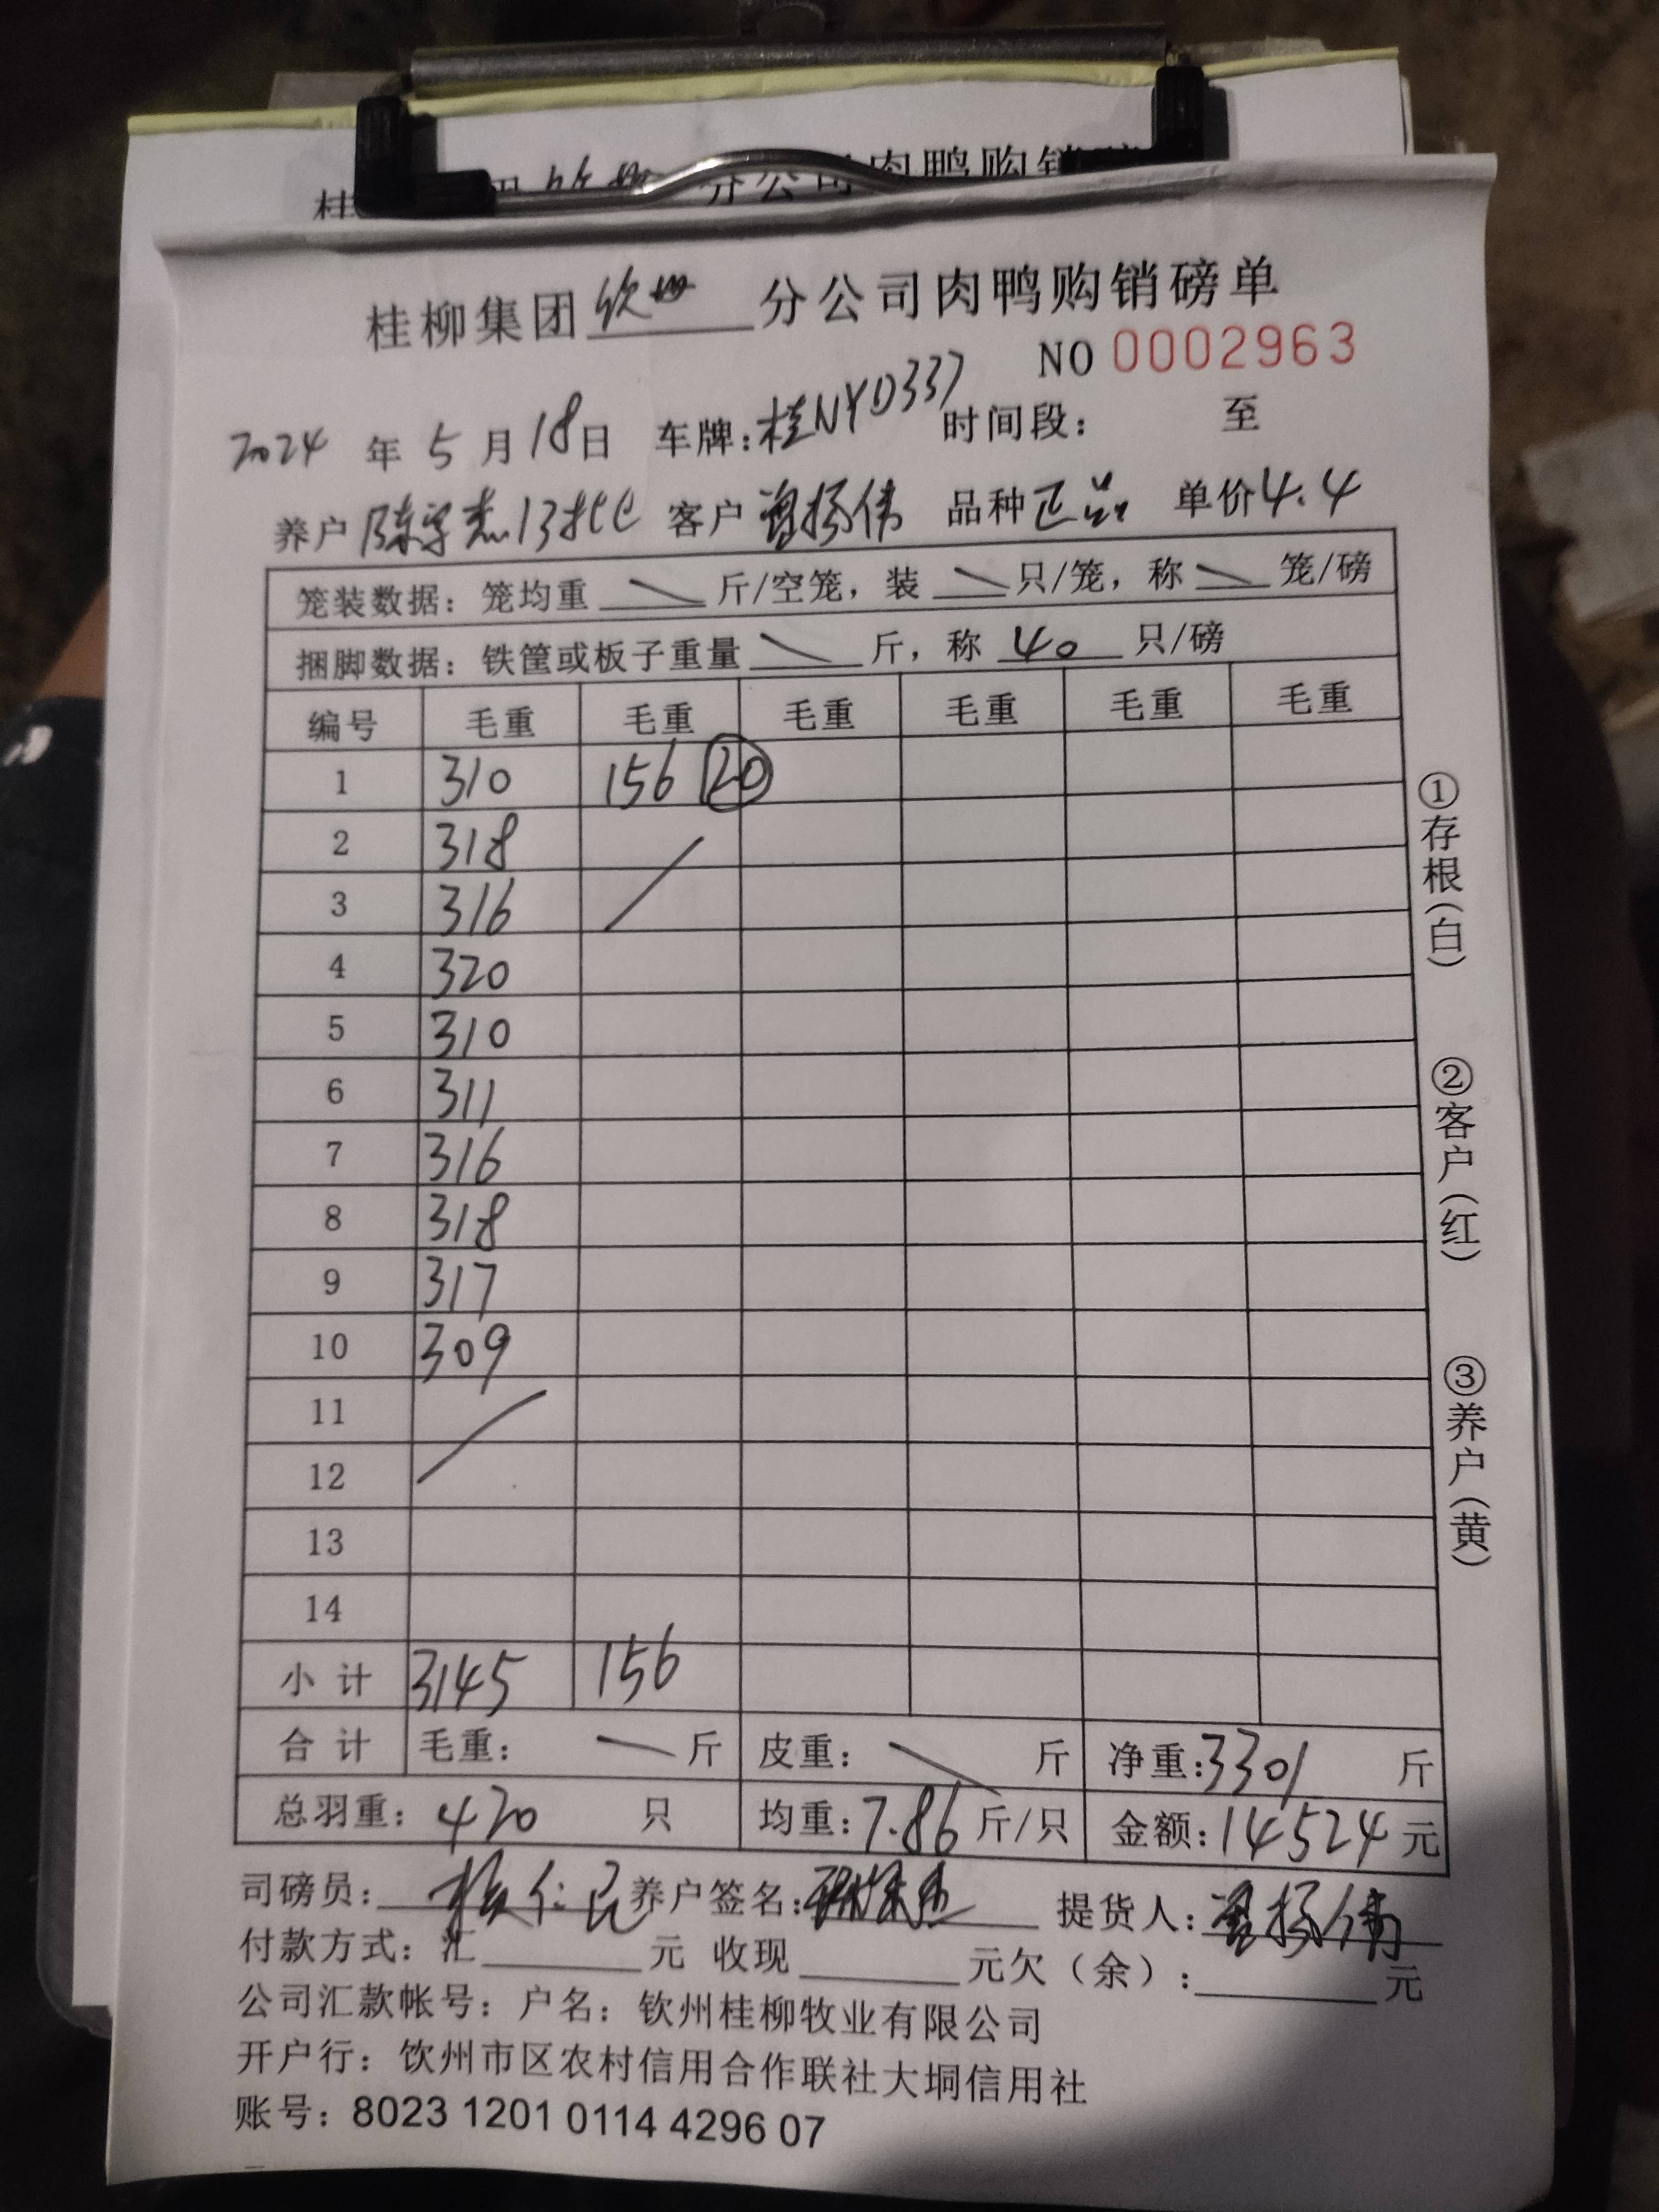 桂柳集团钦州分公司肉鸭购销磅单
NO 0002963
2024年5月18日 车牌:桂NYD337 时间段: 至
养户 陈学杰13批 客户 曾扬伟 品种 正品 单价4.4
笼装数据:笼均重 斤/空笼,装 只/笼,称 笼/磅
捆脚数据:铁筐或板子重量 斤,称 40 只/磅
编号 毛重 毛重 毛重 毛重 毛重 毛重
1 310 156 20
2 318
3 316
4 320
5 310
6 311
7 316
8 318
9 317
10 309
11
12
13
14
小计 3145 156
合计 毛重: 斤 皮重: 斤 净重:3301 斤
总羽重:420 只 均重:7.86斤/只 金额:14524元
司磅员: 养户签名: 提货人:曾扬伟
付款方式:汇 元 收现 元欠(余): 元
公司汇款帐号:户名:钦州桂柳牧业有限公司
开户行:饮州市区农村信用合作联社大垌信用社
账号:8023 1201 0114 4296 07
①存根(白)
②客户(红)
③养户(黄)